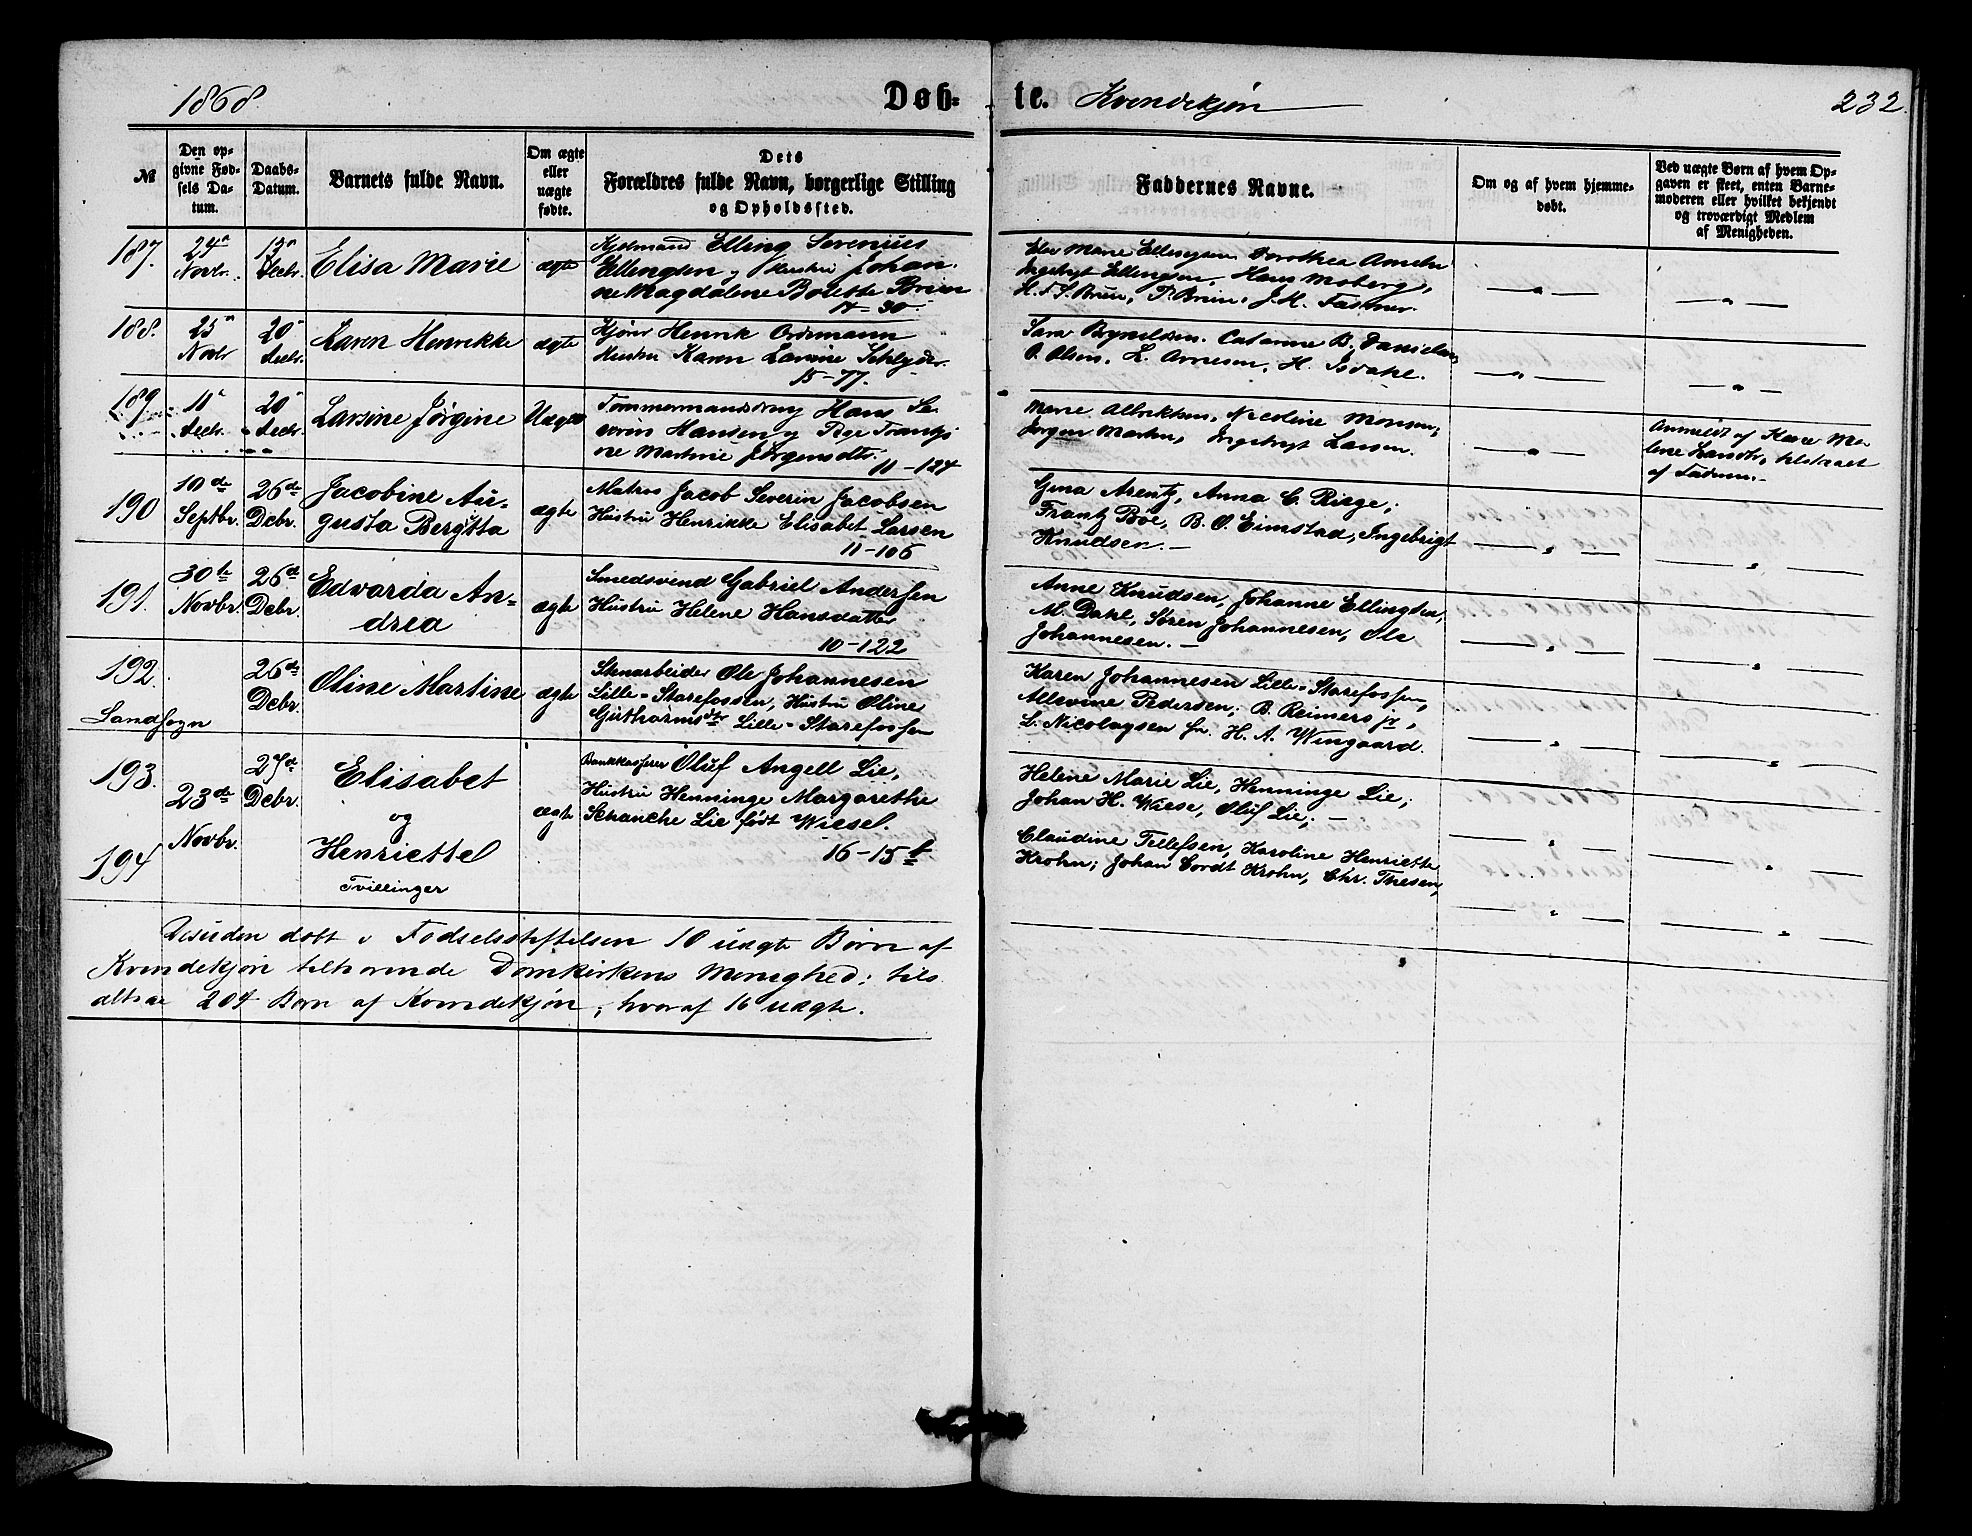 1868.
Døb- te. Kvindekjøn
232.
№
Den op-
givne Fød-
sels Da-
tum.
Daabs-
Datum.
Barnets fulde Navn.
Om ægte
eller
uægte
fødte.
Dets
Forældres fulde Navn, borgerlige Stilling
og Opholdssted.
Faddernes Navne.
Om og af hvem hjemme-
døbt.
Ved uægte Børn af hvem Op-
gaven er skeet, enten Barne-
moderen eller hvilket bekjendt
og troværdigt Medlem
af Menigheden.
187.
24
Novbr.
Decbr.
Elisa Marie
ægte
Elling Severinus
Ellingsen og Hustru Johan-
ne Magdalene Bolette Brun
17-30.
Marie Ellingsen, Dorothea
Ingebrigt Ellingsen, Hans Moberg,
H. F. S. Brun, P. Brun, J. M. Fasmer.
188.
25
Novbr
20
Decbr.
Karen Henrikke
ægte
Henrik Ordemann
Hustru Karen Lavine
15-77.
Catarine B. Danielsen
O. Olsen, L. Arnesen, H.
189.
11
Decbr.
20
Decbr.
Larsine Jørgine
Uægte
Tømmermandsdreng Hans Se-
verin Hansen og Pige
ne Martine Jørgensdtr.
11-124
Marie Albrektsen, Nicoline Monsen,
Jørgen Martin, Ingebrigt Larsen.
Anmeldt af Karen Ma-
lene
af Faderen.
190
10de
Septbr.
26de
Debr.
Jacobine Au-
gusta Bergitta
ægte
Matros Jacob Severin Jacobsen
Hustru Henrikke Elisabet Larsen
11-106
Gina Arentz, Anna C. Riege,
Frantz Böe, B. O. Eimstad, Ingebrigt
Knudsen.
191.
30te
Novbr.
26de
Debr.
Edvarda An=
drea
ægte
Smedsvend Gabriel Andersen
Hustru Helene Hansdatter
10-122
Anne Knudsen, Johanne Ellingsen,
M. Dahl, Søren Johannesen, Ole
Johannesen.
192.
Landsogn
26de
Debr.
Oline Martine
ægte
Stenarbeider Ole Johannesen
Lille-Starefossen, Hustru Oline
Guthormsdtr Lille-Starefossen
Karen Johannesen Lille-Starefossen,
Allevine Pedersen; B. Reimers jr,
L. Nicolaysen for H. A. Wingaard.
193.
194
23de
Novbr.
27de
Debr.
Elisabet
og
Henriette
Tvillinger
ægte
Bankkasserer Oluf Angell Lie,
Hustru Henninge Margarethe
Schanche Lie født Wiesel.
16-15
Helene Marie Lie, Henninge Lie,
Johan H. Wiese, Oluf Lie,
Claudine Tellefsen, Karoline Henriette
Krohn; Johan Cordt Krohn, Chr. Thesen,
Desuden døbt i Fødselsstiftelsen 10 uægte Børn af
Kvindekjøn tilhørende Domkirkens Menighed; tils.
altsaa 204 Børn af Kvindekjøn, hvoraf 16 uægte.